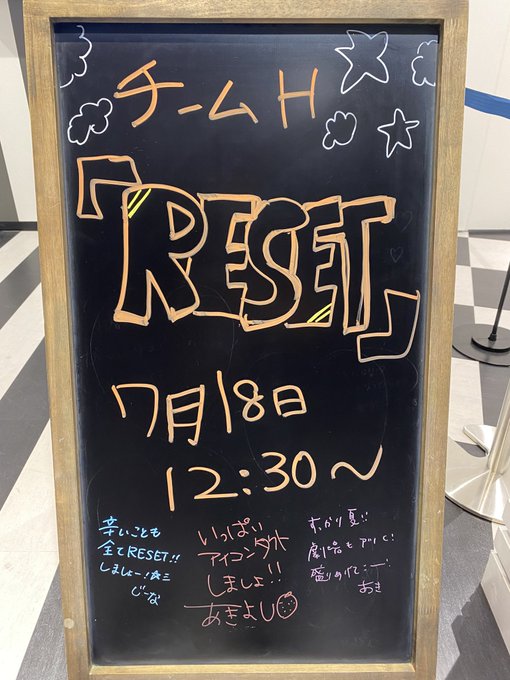 チームH
「RESET」
7月18日
12:30～
辛いことも
全てRESET!!
しましょー!☆ミ
じーな
いっぱい
アイコンタクト
しましょ!!
あきよし
すっかり夏!!
劇場も アツく!
あき